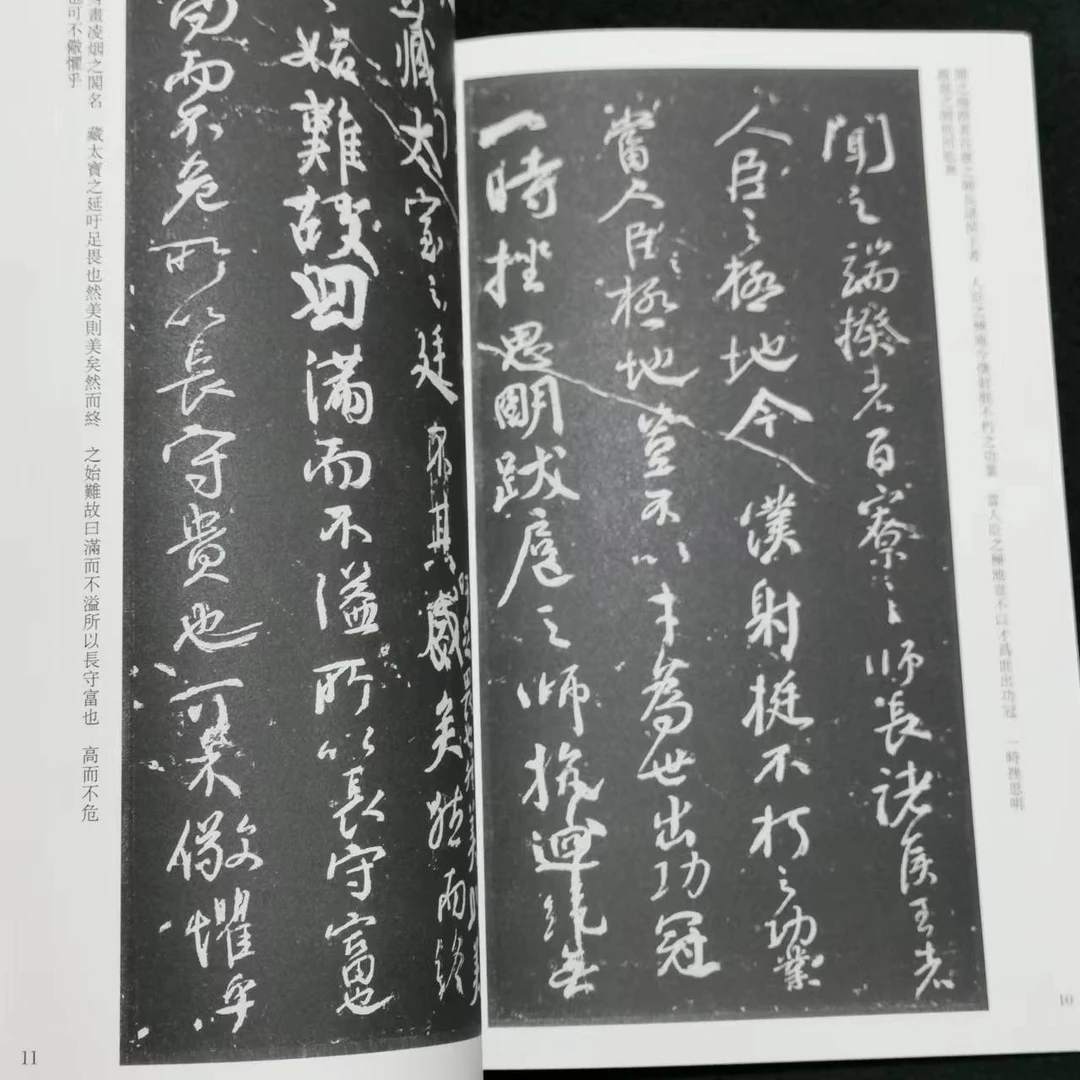 聞之端揆者百寮之師長諸侯王者 人臣之極地今僕射挺不朽之功業 當人臣之極地豈不以才爲世出功冠 一時挫思明
跋扈之師抗回紇無
聞之端揆者百寮之師長諸侯王者
人臣之極地今僕射挺不朽之功業
當人臣之極地豈不以才為世出功冠
一時挫思明跋扈之師抗迴紇無
10
藏太室之廷其盛矣然而終
吁足畏也然美則美
之始難故曰滿而不溢所以長守富也
高而不危所以長守貴也可不儆懼乎
畫凌烟之閣名 藏太寶之延吁足畏也然美則美矣然而終 之始難故曰滿而不溢所以長守富也 高而不危
也可不儆懼乎
11